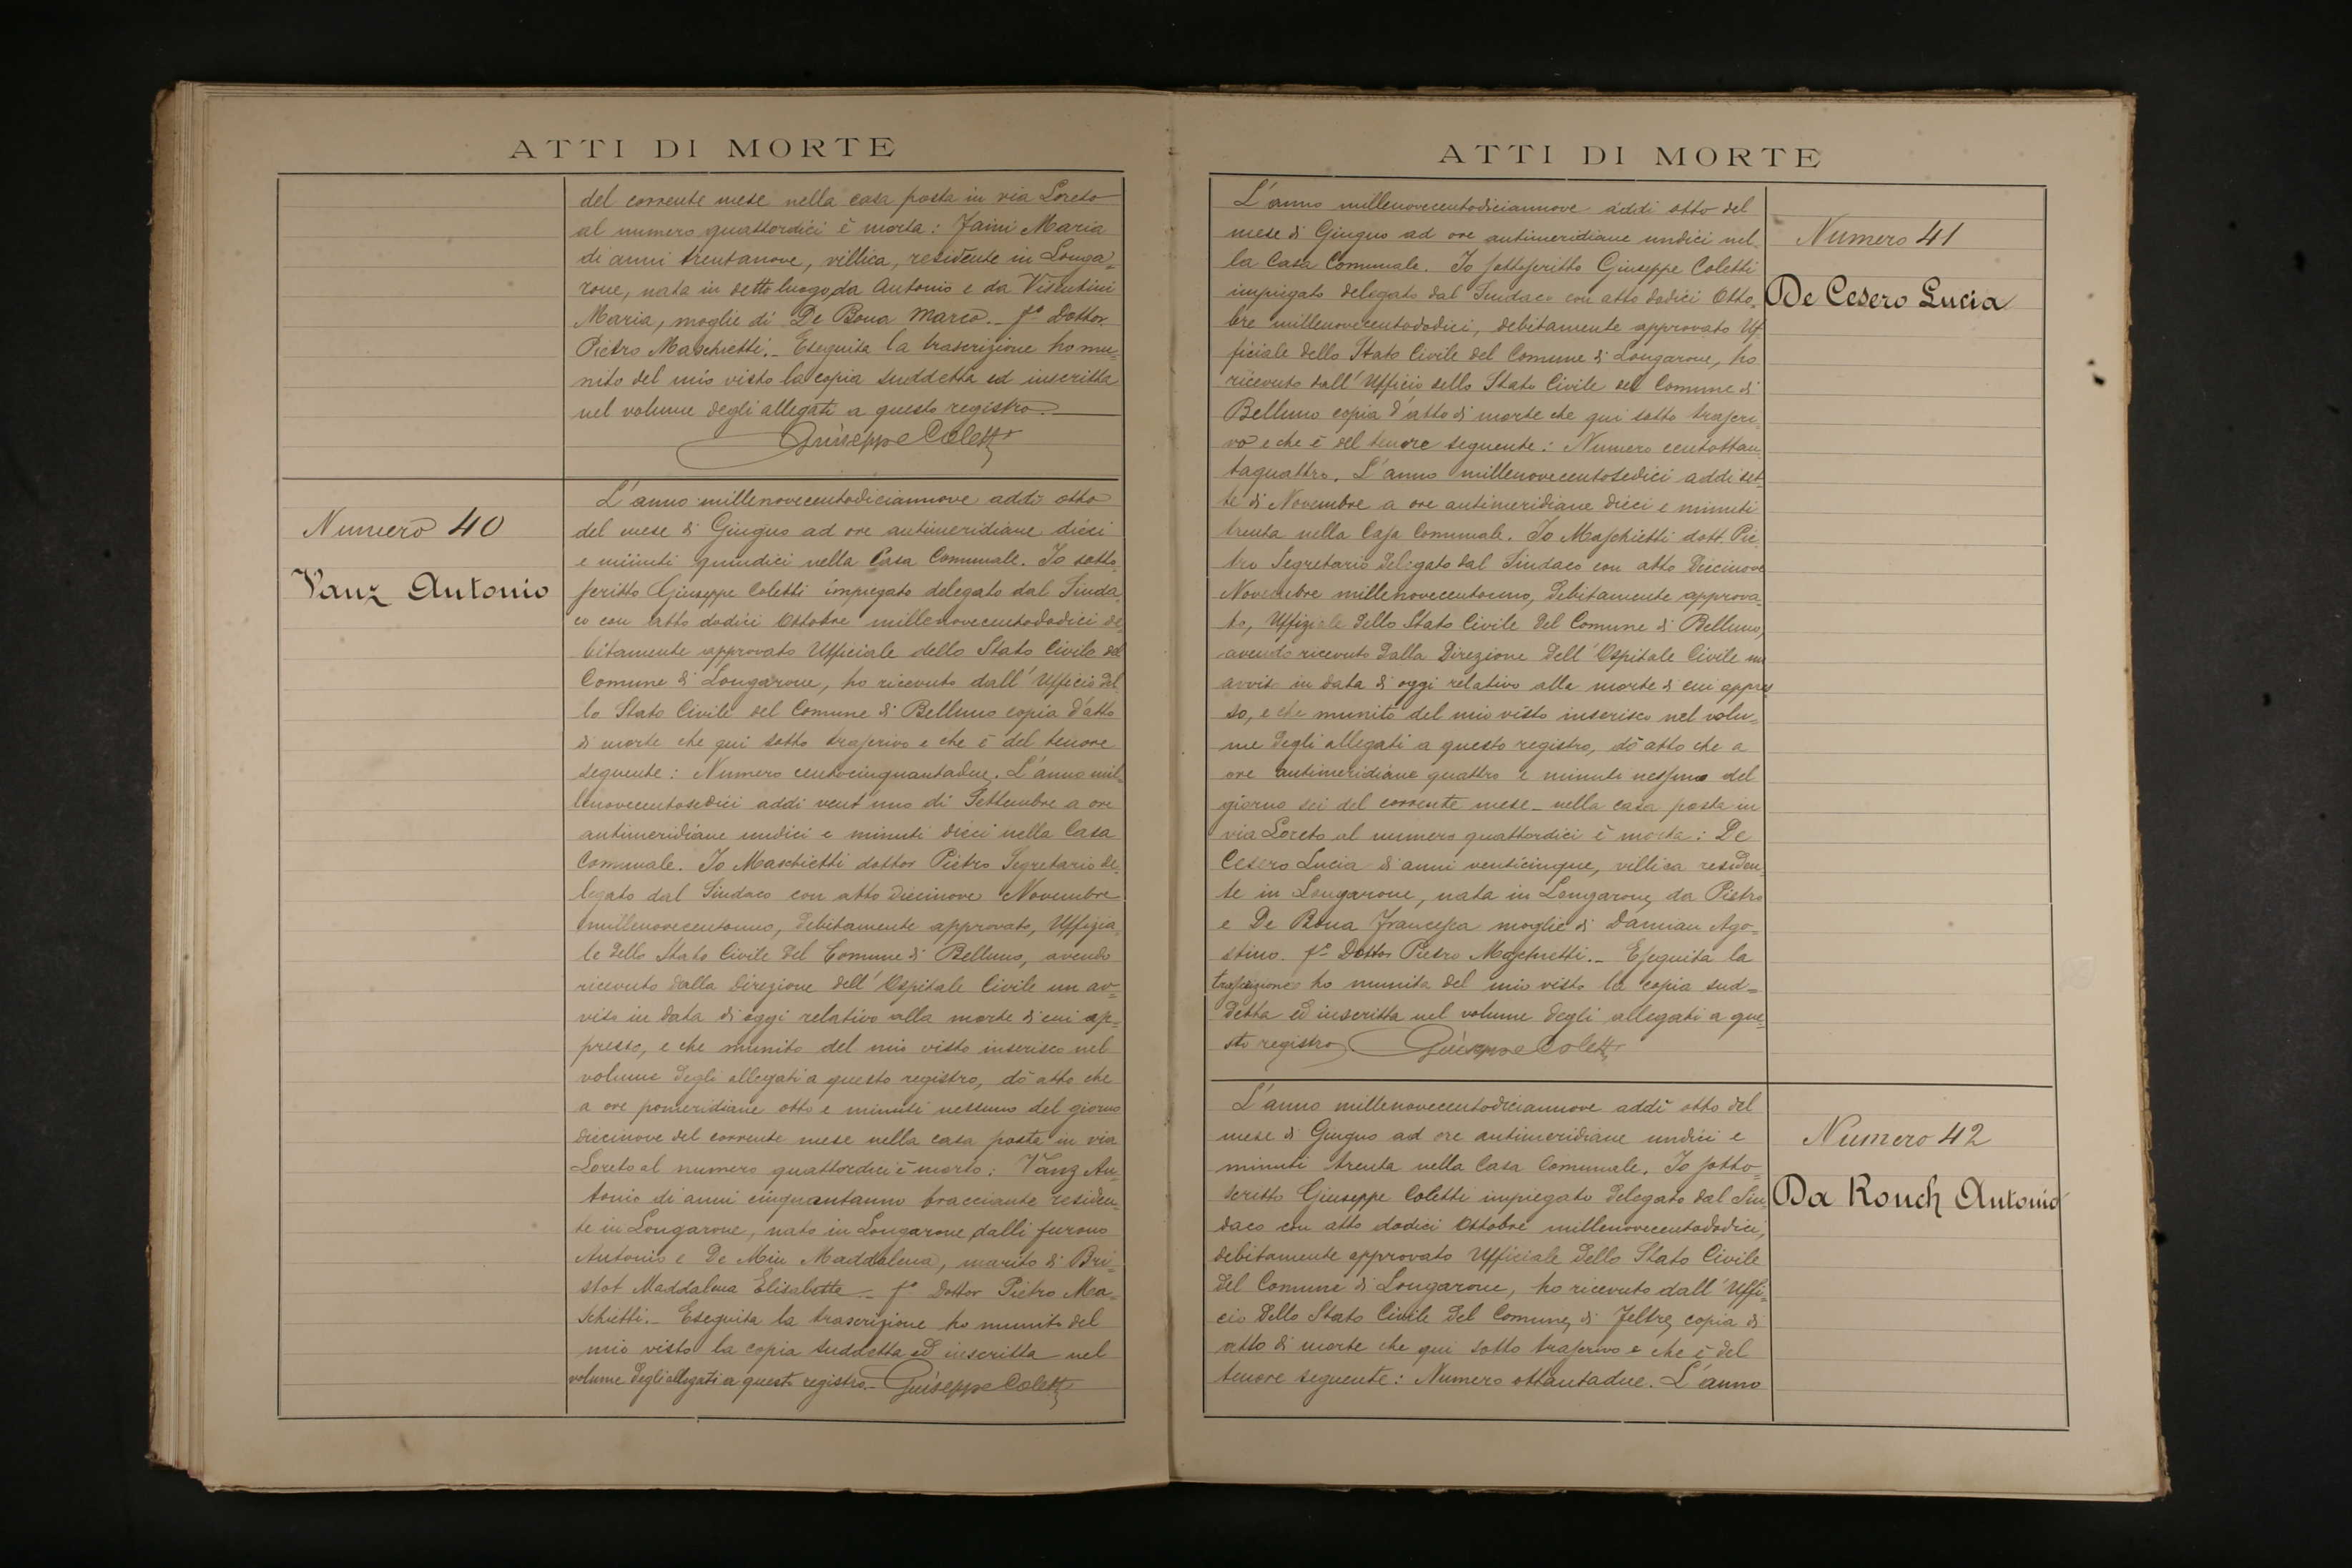 ATTI DI MORTE
del corrente mese nella casa posta in via Loreto
al numero quattordici è morta: Faini Maria
di anni trentanove, villica, residente in Longa=
rone, nata in detto luogo, da Antonio e da Visentini
Maria, moglie di De Bona Marco. _ fo Dottor
Pietro Maschietti. _ Eseguita la trascrizione ho mu=
nito del mio visto la copia suddetta ed inscritta
nel volume degli allegati a questo registro.
Giuseppe Coletti
Numero 40
Vanz Antonio
L'anno millenovecentodiciannove addi otto
del mese di Giugno ad ore antimeridiane dieci
e minuti quindici nella Casa Comunale. Io sotto=
scritto Giuseppe Coletti impiegato delegato dal Sinda=
co con atto dodici Ottobre millenovecentododici de=
bitamente approvato Ufficiale dello Stato Civile del
Comune di Longarone, ho ricevuto dall'Ufficio del=
lo Stato Civile del Comune di Belluno copia d'atto
di morte che qui sotto trascrivo e che è del tenore
seguente: Numero centocinquantadue. L'anno mil=
lenovecentosedici addi vent'uno di Settembre a ore
antimeridiane undici e minuti dieci nella Casa
Comunale. Io Maschietti dottor Pietro Segretario de=
legato dal Sindaco con atto diecinove Novembre
millenovecentouno, debitamente approvato, Uffizia=
le dello Stato Civile del Comune di Belluno, avendo
ricevuto dalla Direzione dell'Ospitale Civile un av=
viso in data di oggi relativo alla morte di cui ap=
presso, e che munito del mio visto inserisco nel
volume degli allegati a questo registro, dò atto che
a ore pomeridiane otto e minuti nessuno del giorno
diecinove del corrente mese nella casa posta in via
Loreto al numero quattordici è morto: Vanz An=
tonio di anni cinquantanno bracciante residen=
te in Longarone, nato in Longarone dalli furono
Antonio e De Min Maddalena, marito di Bri=
stot Maddalena Elisabetta _ fo Dottor Pietro Ma=
schietti. _ Eseguita la trascrizione ho munito del
mio visto la copia suddetta ed inscritta nel
volume degli allegati a questo registro. _ Giuseppe Coletti
ATTI DI MORTE
L'anno millenovecentodiciannove addi otto del
mese di Giugno ad ore antimeridiane undici nel=
la Casa Comunale. Io sottoscritto Giuseppe Coletti
impiegato delegato dal Sindaco con atto dodici Otto=
bre millenovecentododici, debitamente approvato Uf=
ficiale dello Stato Civile del Comune di Longarone, ho
ricevuto dall'Ufficio dello Stato Civile del Comune di
Belluno copia d'atto di morte che qui sotto trascri=
vo e che è del tenore seguente: Numero centottan=
taquattro. L'anno millenovecentosedici addi set=
te di Novembre a ore antimeridiane dieci e minuti
trenta nella Casa Comunale. Io Maschietti dott. Pie=
tro Segretario delegato dal Sindaco con atto diecinove
Novembre millenovecentouno, debitamente approva=
to, Uffiziale dello Stato Civile del Comune di Belluno,
avendo ricevuto dalla Direzione dell'Ospitale Civile un
avviso in data di oggi relativo alla morte di cui appres
so, e che munito del mio visto inserisco nel volu=
me degli allegati a questo registro, dò atto che a
ore antimeridiane quattro e minuti nessuno del
giorno sei del corrente mese _ nella casa posta in
via Loreto al numero quattordici è morta: De
Cesero Lucia di anni venticinque, villica residen=
te in Longarone, nata in Longarone, da Pietro
e De Bona Francesca moglie di Damian Ago=
stino. fo Dottor Pietro Maschietti. _ Eseguita la
trascrizione ho munita del mio visto la copia sud=
detta ed inscritta nel volume degli allegati a que=
sto registro Giuseppe Coletti
Numero 41
De Cesero Lucia
L'anno millenovecentodiciannove addì otto del
mese di Giugno ad ore antimeridiane undici e
minuti trenta nella Casa Comunale. Io sotto=
scritto Giuseppe Coletti impiegato delegato dal Sin=
daco con atto dodici Ottobre millenovecentododici,
debitamente approvato Ufficiale dello Stato Civile
del Comune di Longarone, ho ricevuto dall'Uffi=
cio dello Stato Civile del Comune, di Feltre, copia di
atto di morte che qui sotto trascrivo e che è del
tenore seguente: Numero ottantadue. L'anno
Numero 42
Da Ronch Antonio